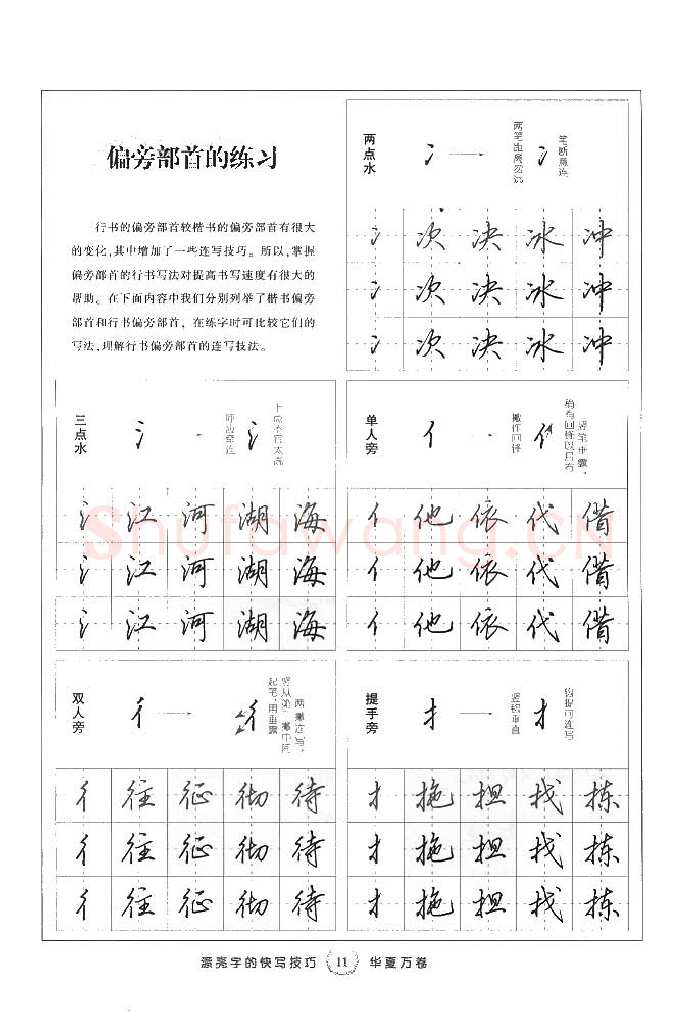 偏旁部首的练习
行书的偏旁部首较楷书的偏旁部首有很大
的变化,其中增加了一些连写技巧。所以,掌握
偏旁部首的行书写法对提高书写速度有很大的
帮助。在下面内容中我们分别列举了楷书偏旁
部首和行书偏旁部首，在练字时可比较它们的
写法,理解行书偏旁部首的连写技法。
两点水
冫
两笔距离勿远
冫
笔断意连
冫 次 决 冰 冲
冫 次 决 冰 冲
冫 次 决 冰 冲
三点水
氵
氵
氵 江 河 湖 海
氵 江 河 湖 海
氵 江 河 湖 海
单人旁
亻
撇作回锋
亻
亻 他 依 代 借
亻 他 依 代 借
亻 他 依 代 借
双人旁
彳
彳
两撇连写,
彳 往 征 彻 待
彳 往 征 彻 待
彳 往 征 彻 待
提手旁
扌
竖积垂直
扌
钩提可连写
扌 拖 担 找 拣
扌 拖 担 找 拣
扌 拖 担 找 拣
Shufawang.CN
漂亮字的快写技巧 11 华夏万卷